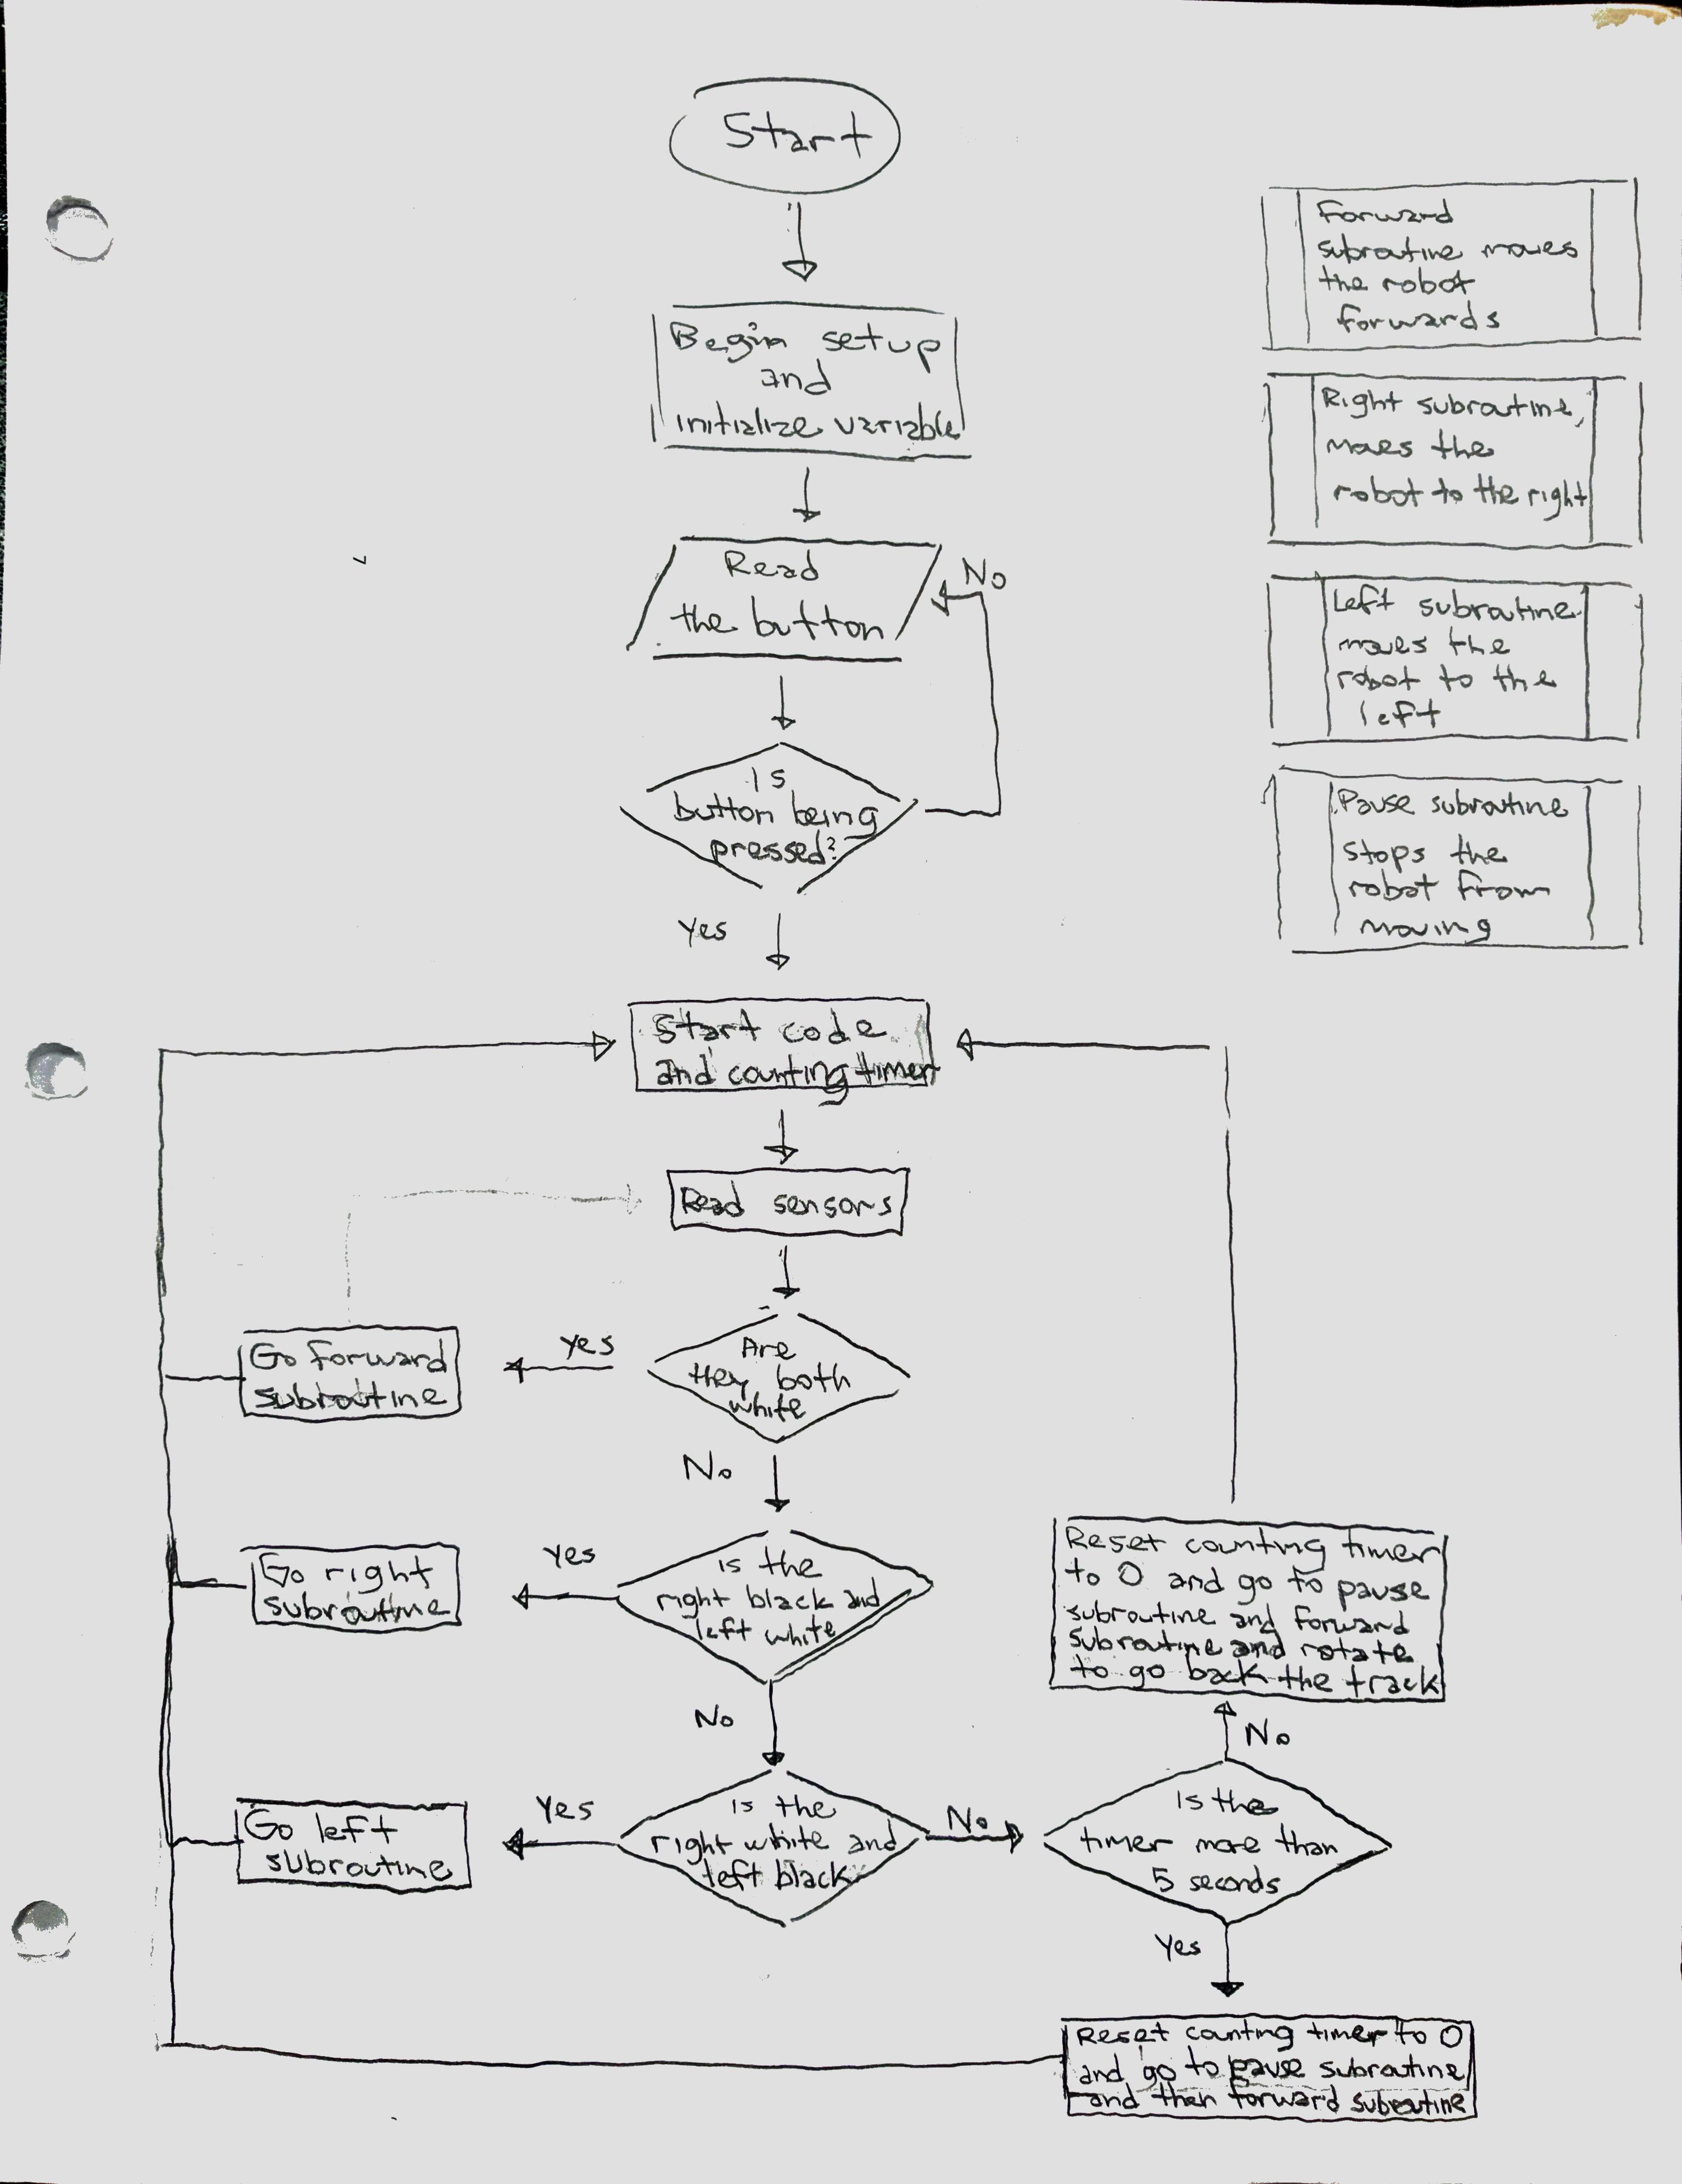 Start
Begin setup
and
initialize variable
Read
the button
No
Is
button being
pressed?
Yes
Start code
and counting timer
Read sensors
Are
they both
white
Yes
Go forward
subroutine
No
is the
right black and
left white
Yes
Go right
subroutine
No
is the
right white and
left black
Yes
Go left
subroutine
No
Is the
timer more than
5 seconds
No
Reset counting timer
to 0 and go to pause
subroutine and forward
subroutine and rotate
to go back the track
Yes
Reset counting timer to 0
and go to pause subroutine
and then forward subroutine
Forward
subroutine moves
the robot
forwards
Right subroutine,
moves the
robot to the right
Left subroutine
moves the
robot to the
left
Pause subroutine
stops the
robot from
moving